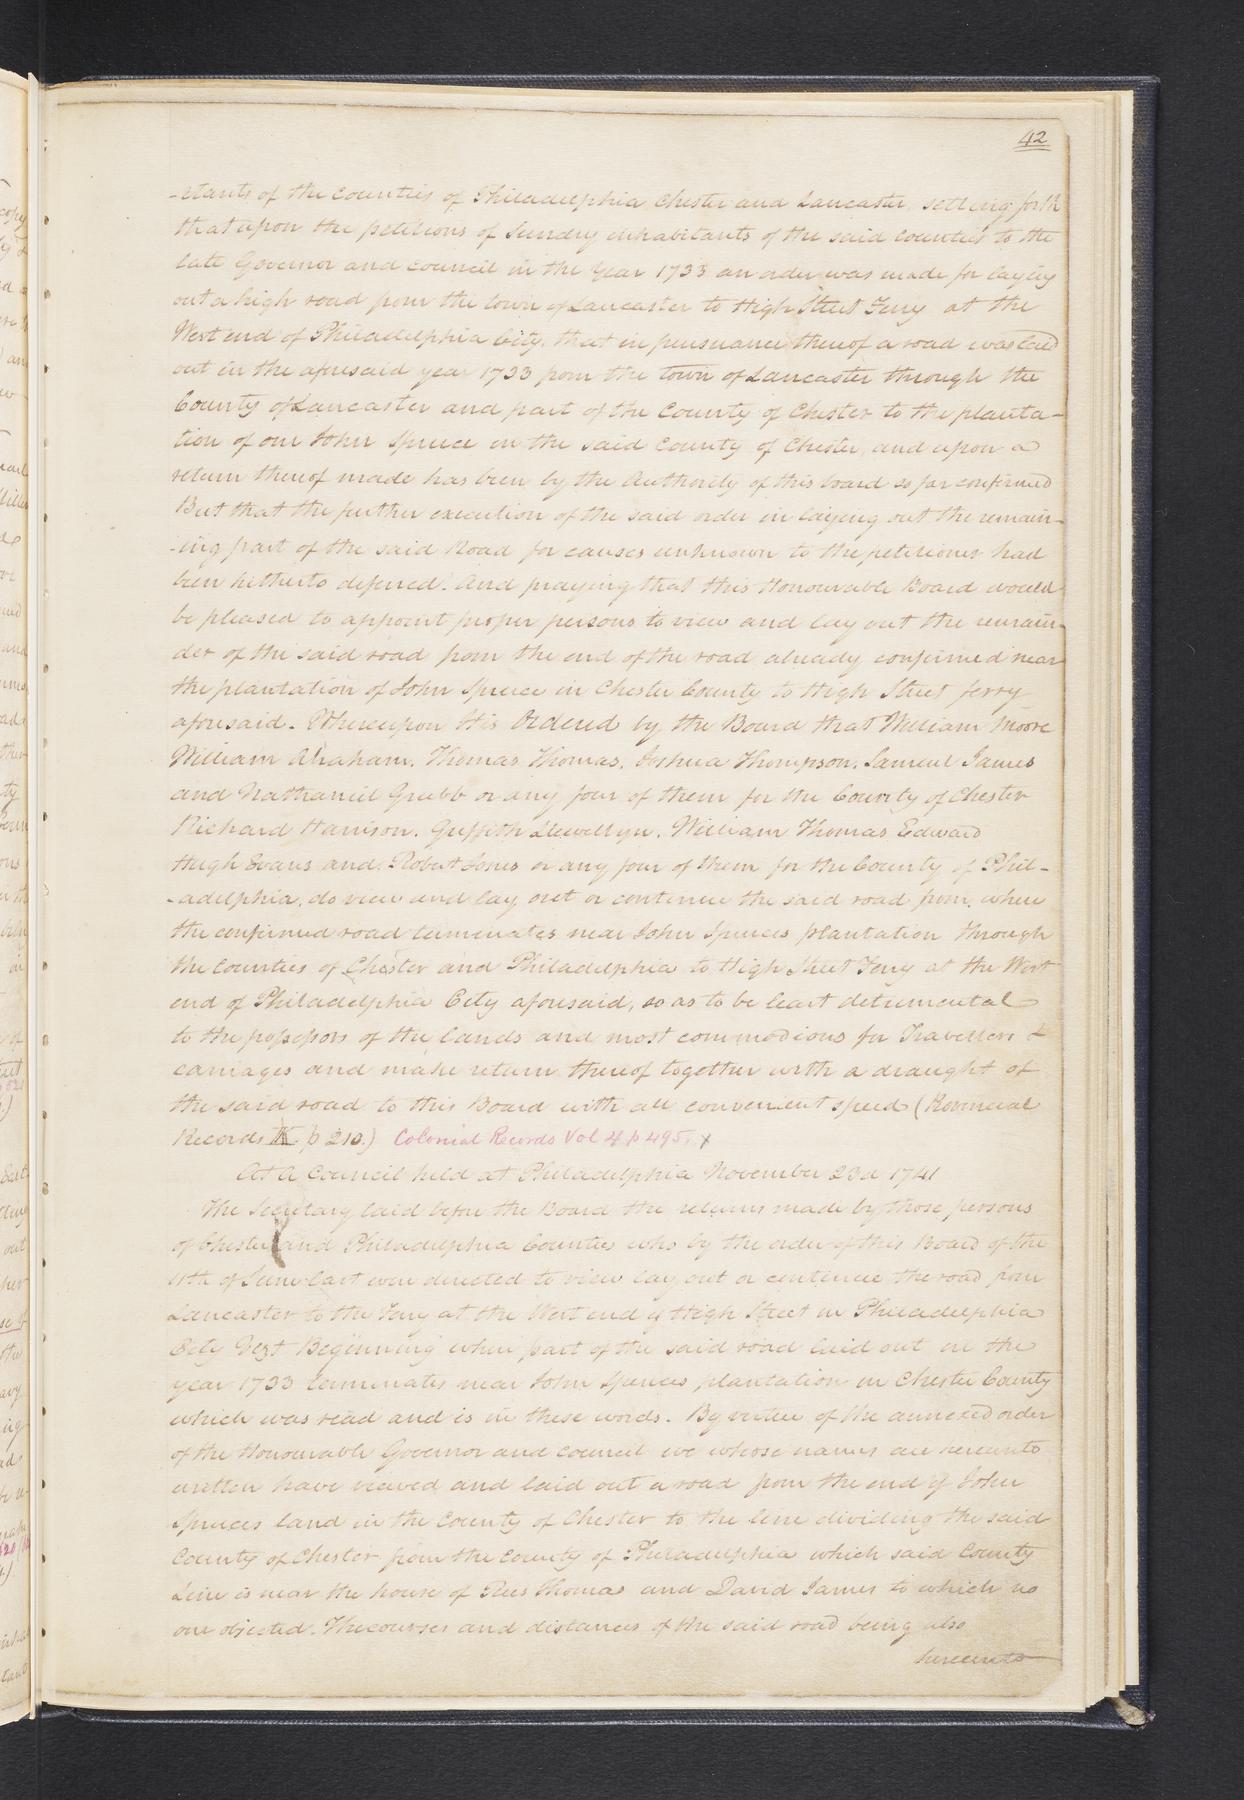 42
-itants of the Counties of Philadelphia Chester and Lancaster, setting forth
that upon the petitions of Sundry inhabitants of the said Counties to the
late Governor and Council in the Year 1733 an order was made for laying
out a high road from the town of Lancaster to High Street Ferry at the
West end of Philadelphia City, that in persuance thereof a road was laid
out in the aforesaid year 1733 from the town of Lancaster through the
County of Lancaster and part of the County of Chester to the planta-
tion of one John Spruce in the said County of Chester, and upon a
return thereof made has been by the Authority of this board so far confirmed
But that the further execution of the said order in laying out the remain-
-ing part of the said Road for causes unknown to the petitioners had
been hitherto deferred. And praying that this Honourable Board would
be pleased to appoint proper persons to view and lay out the remain-
der of the said road from the end of the road already confirmed near
the plantation of John Spruce in Chester County to High Street ferry
aforesaid. Whereupon tis Ordered by the Board that William Moore
William Abraham. Thomas Thomas. Joshua Thompson. Samuel James
and Nathaniel Grubb or any four of them for the County of Chester
Richard Harrison. Griffith Llewellyn. William Thomas Edward
Hugh Evans and Robert Jones or any four of them for the County of Phil-
-adelphia. do view and lay out or continue the said road from where
the confirmed road terminates near John Spruces plantation through
the Counties of Chester and Philadelphia to High Street Ferry at the West
end of Philadelphia City aforesaid, so as to be least detrimental
to the possessors of the lands and most commodious for Travellers &
carriages and make return thereof together with a draught of
the said road to this Board with all convenient speed (Provincial
Records K p 210.) Colonial Records Vol 4 p 495. x
At A Council held at Philadelphia November 23d 1741
The Secretary laid before the Board the returns made by those persons
of Chester and Philadelphia Counties who by the order of this Board of the
11th of June last were directed to view lay out or continue the road from
Lancaster to the Ferry at the West end of High Street in Philadelphia
City Vizt Beginning where part of the said road laid out in the
year 1733 terminates near John Spruces plantation in Chester County
which was read and is in these words. By virtue of the annexed order
of the Honourable Governor and Council we whose names are hereunto
written have viewed and laid out a road from the end of John
Spruces land in the County of Chester to the line dividing the said
County of Chester from the County of Philadelphia which said County
Line is near the house of Rees Thomas and David James to which no
one objected. The courses and distances of the said road being also
hereunto